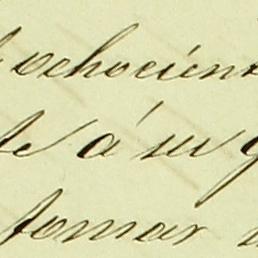 ochocient
te á su g
tomar